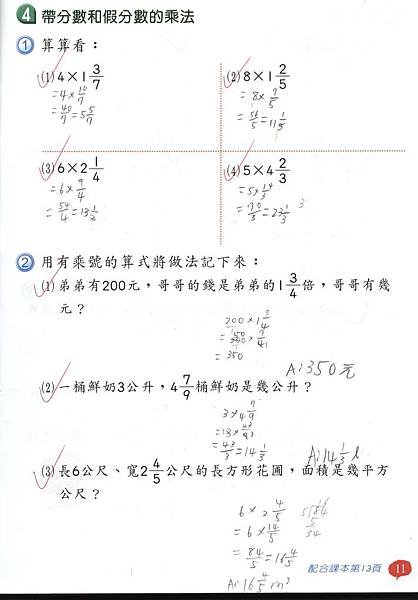 4 帶分數和假分數的乘法
1 算算看：
(1) 4×1 3/7
=4×10/7
=40/7=5 5/7
(2) 8×1 2/5
=8×7/5
=56/5=11 1/5
(3) 6×2 1/4
=6×9/4
=54/4=13 1/2
(4) 5×4 2/3
=5×14/3
=70/3=23 1/3
2 用有乘號的算式將做法記下來：
(1) 弟弟有200元，哥哥的錢是弟弟的1 3/4倍，哥哥有幾
元？
200×1 3/4
=350
A：350元
(2) 一桶鮮奶3公升，4 7/9桶鮮奶是幾公升？
3×4 7/9
=43/3=14 1/3
A：14 1/3 l
(3) 長6公尺、寬2 4/5公尺的長方形花圃，面積是幾平方
公尺？
6×2 4/5
=6×14/5
=84/5=16 4/5
A：16 4/5 m²
配合課本第13頁 11